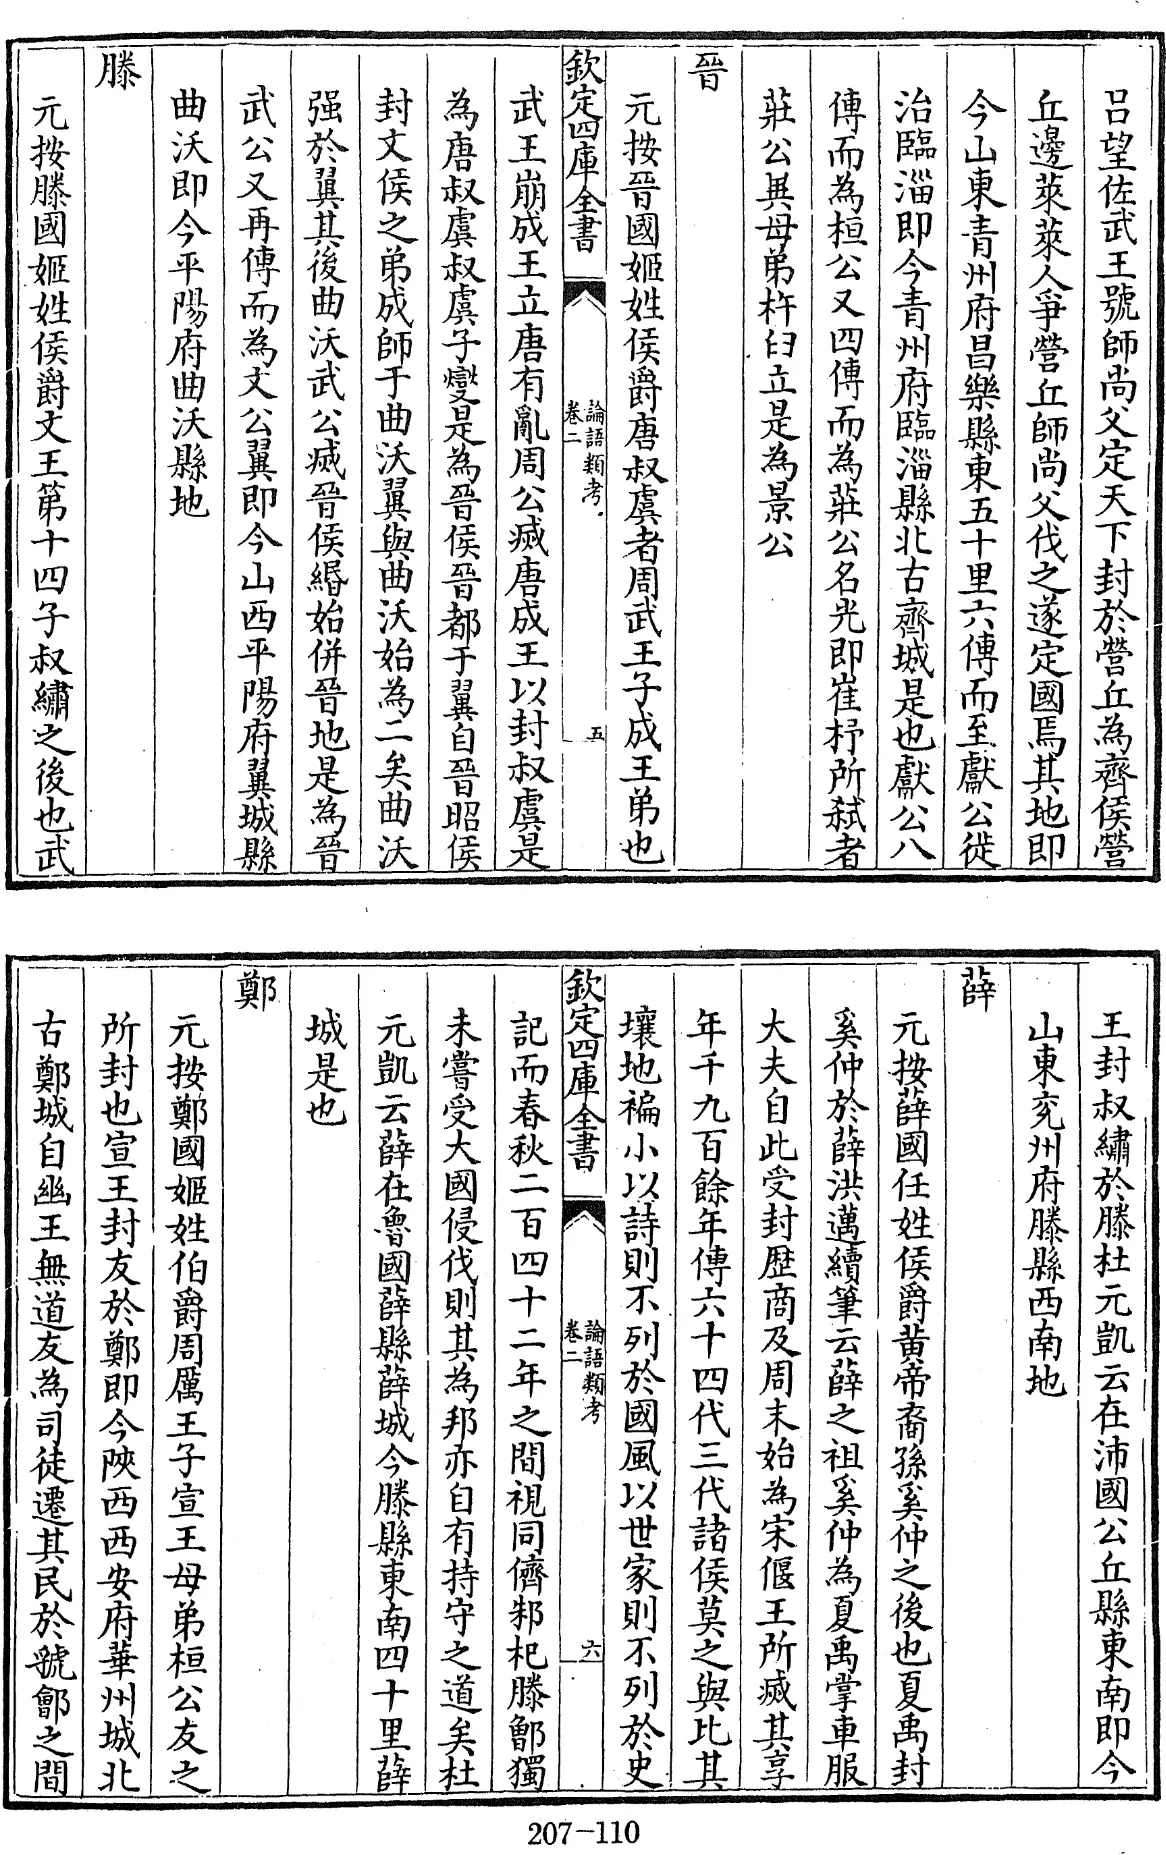 吕望佐武王號師尚父定天下封於營丘為齊侯營
丘邊萊萊人爭營丘師尚父伐之遂定國焉其地即
今山東青州府昌樂縣東五十里六傳而至獻公徙
治臨淄即今青州府臨淄縣北古齊城是也獻公八
傳而為桓公又四傳而為莊公名光即崔杼所弑者
莊公異母弟杵臼立是為景公
晉
元按晉國姬姓侯爵唐叔虞者周武王子成王弟也
欽定四庫全書
論語類考
卷二
五
武王崩成王立唐有亂周公滅唐成王以封叔虞是
為唐叔虞叔虞子燮是為晉侯晉都于翼自晉昭侯
封文侯之弟成師于曲沃翼與曲沃始為二矣曲沃
强於翼其後曲沃武公滅晉侯緡始併晉地是為晉
武公又再傳而為文公翼即今山西平陽府翼城縣
曲沃即今平陽府曲沃縣地
滕
元按滕國姬姓侯爵文王第十四子叔繡之後也武
王封叔繡於滕杜元凱云在沛國公丘縣東南即今
山東兗州府滕縣西南地
薛
元按薛國任姓侯爵黄帝裔孫奚仲之後也夏禹封
奚仲於薛洪邁續筆云薛之祖奚仲為夏禹掌車服
大夫自此受封歴商及周末始為宋偃王所滅其享
年千九百餘年傳六十四代三代諸侯莫之與比其
壤地褊小以詩則不列於國風以世家則不列於史
欽定四庫全書
論語類考
卷二
六
記而春秋二百四十二年之間視同儕邾杞滕鄫獨
未嘗受大國侵伐則其為邦亦自有持守之道矣杜
元凱云薛在魯國薛縣薛城今滕縣東南四十里薛
城是也
鄭
元按鄭國姬姓伯爵周厲王子宣王母弟桓公友之
所封也宣王封友於鄭即今陜西西安府華州城北
古鄭城自幽王無道友為司徒遷其民於虢鄶之間
207-110